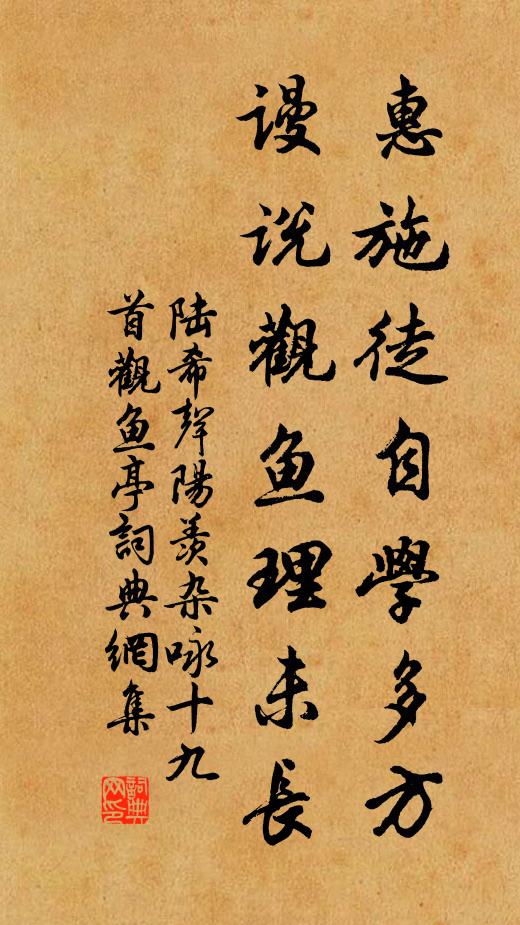 惠施徒自學多方
谩说觀鱼理未長
陆希聲陽羡杂咏十九
首觀鱼亭詞典網集
詞典
网印